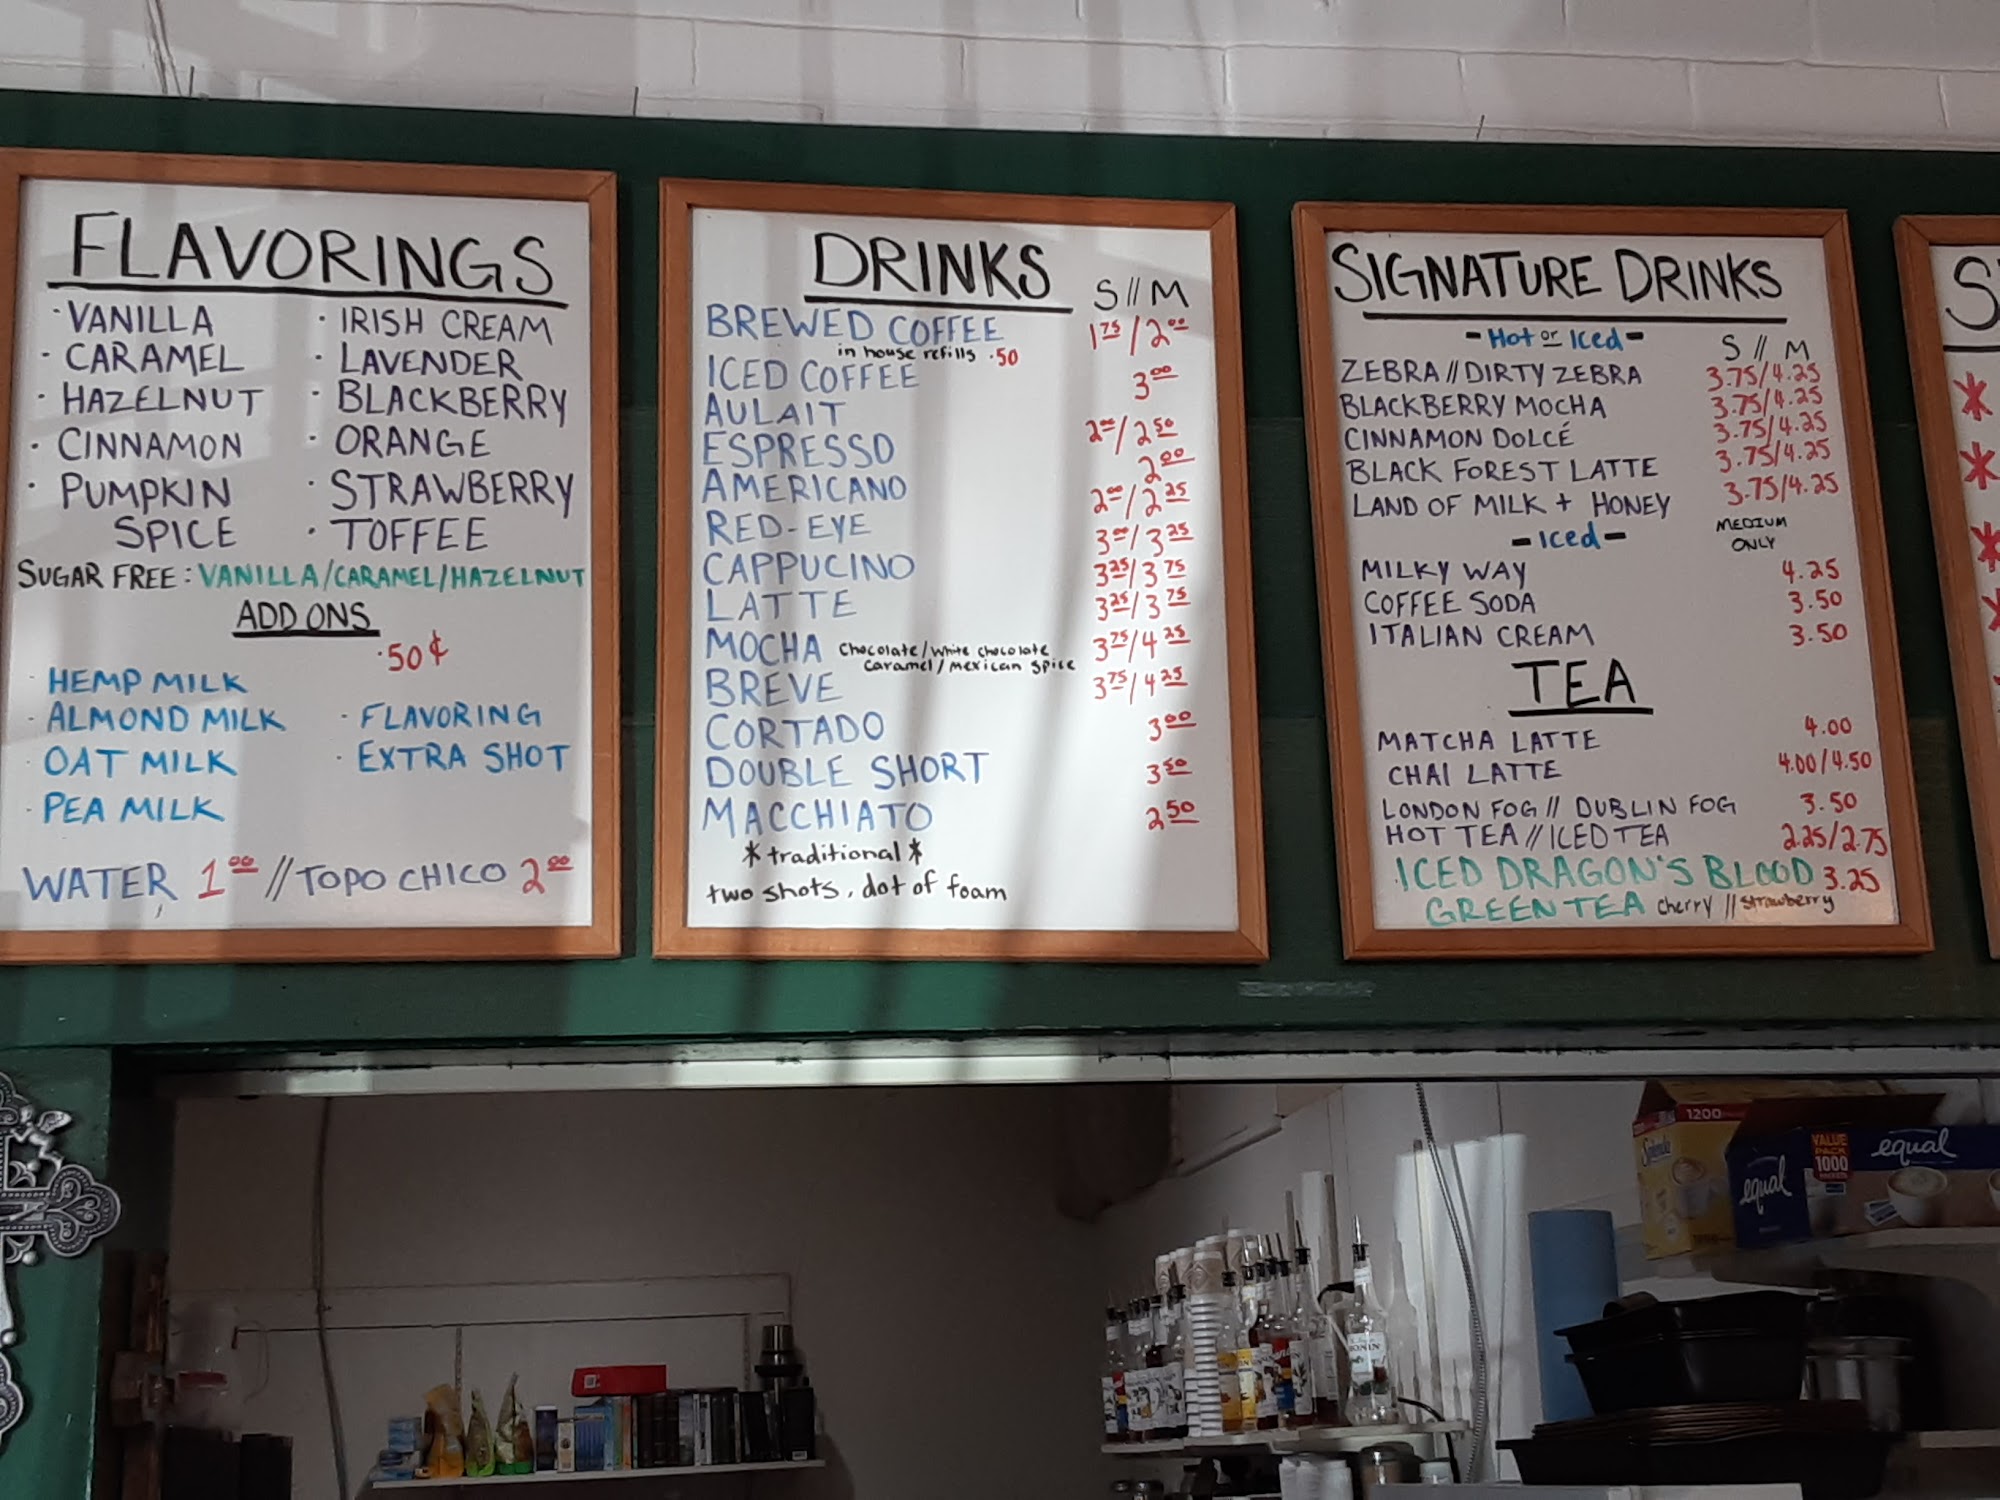 FLAVORINGS
· VANILLA
· CARAMEL
· HAZELNUT
· CINNAMON
· PUMPKIN
SPICE
· IRISH CREAM
· LAVENDER
· BLACKBERRY
· ORANGE
· STRAWBERRY
· TOFFEE
SUGAR FREE: VANILLA/CARAMEL/HAZELNUT
ADD ONS
.50¢
· HEMP MILK
· ALMOND MILK
· OAT MILK
· PEA MILK
· FLAVORING
· EXTRA SHOT
WATER 1.00 // TOPO CHICO 2.00
DRINKS
S // M
BREWED COFFEE 1.75 / 2.00
in house refills .50
ICED COFFEE 3.00
AULAIT 2.00 / 2.50
ESPRESSO 2.00
AMERICANO 2.00 / 2.25
RED-EYE 3.00 / 3.25
CAPPUCINO 3.25 / 3.75
LATTE 3.25 / 3.75
MOCHA Chocolate/White chocolate 3.75 / 4.25
Caramel/Mexican spice
BREVE 3.75 / 4.25
CORTADO 3.00
DOUBLE SHORT 3.50
MACCHIATO 2.50
*traditional*
two shots, dot of foam
SIGNATURE DRINKS
- Hot or Iced -
S // M
ZEBRA // DIRTY ZEBRA 3.75/4.25
BLACKBERRY MOCHA 3.75/4.25
CINNAMON DOLCÉ 3.75/4.25
BLACK FOREST LATTE 3.75/4.25
LAND OF MILK + HONEY 3.75/4.25
- Iced -
MEDIUM
ONLY
MILKY WAY 4.25
COFFEE SODA 3.50
ITALIAN CREAM 3.50
TEA
MATCHA LATTE 4.00
CHAI LATTE 4.00/4.50
LONDON FOG // DUBLIN FOG 3.50
HOT TEA // ICED TEA 2.25/2.75
ICED DRAGON'S BLOOD 3.25
GREEN TEA cherry // strawberry
S
1200
Splenda
equal
VALUE
PACK
1000
equal
MONIN